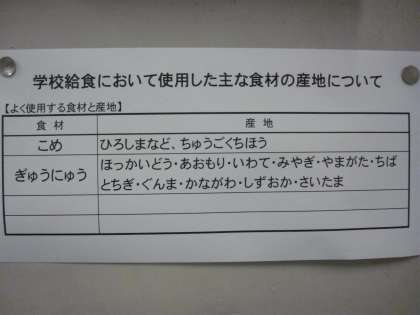 学校給食において使用した主な食材の産地について
【よく使用する食材と産地】
食 材 産 地
こめ ひろしまなど、ちゅうごくちほう
ぎゅうにゅう ほっかいどう・あおもり・いわて・みやぎ・やまがた・ちば
とちぎ・ぐんま・かながわ・しずおか・さいたま